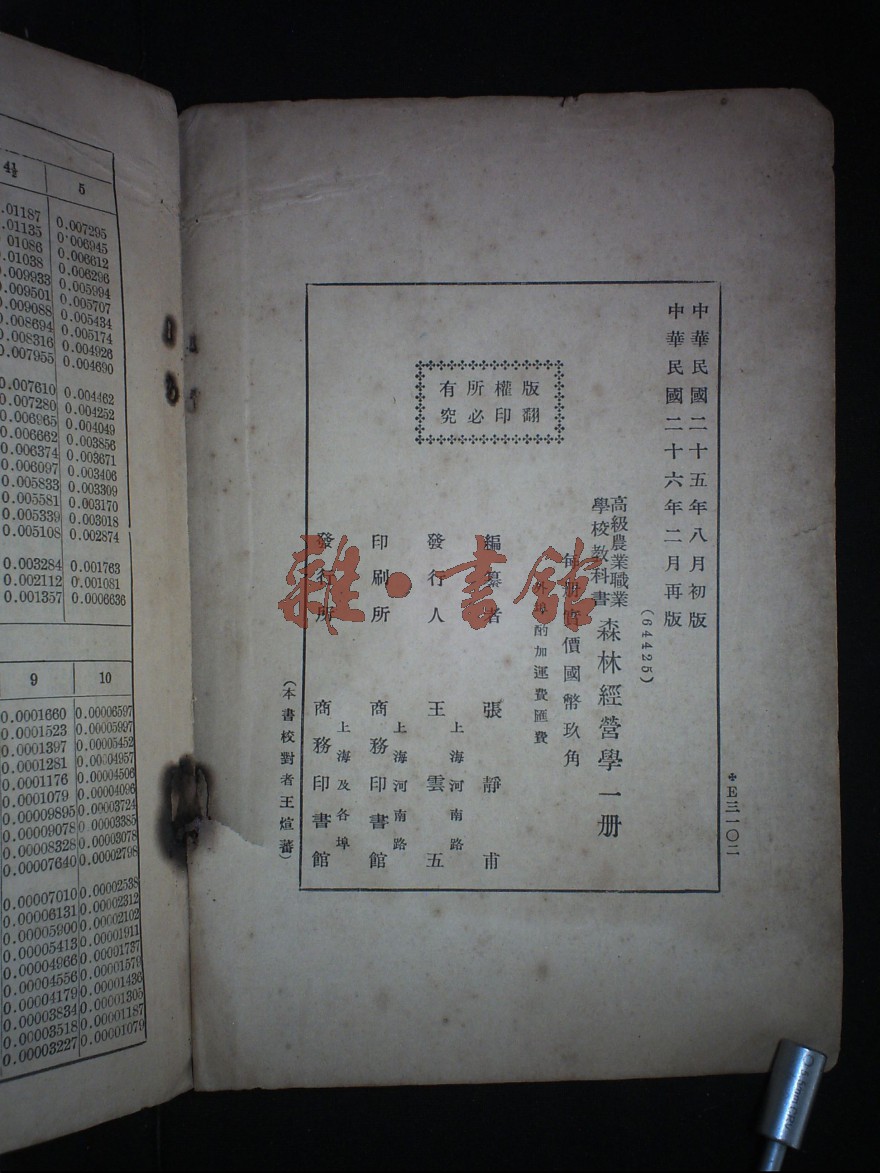 4½
5
.01187 0.007295
.01135 0.006945
01086 0.006612
.01038 0.006296
.009933 0.005994
.009501 0.005707
.009088 0.005434
.008694 0.005174
.008316 0.004926
.007955 0.004690
.007610 0.004462
.007280 0.004252
.006965 0.004049
.006662 0.003856
.006374 0.003671
.006097 0.003406
.005833 0.003309
.005581 0.003170
.005339 0.003018
.005108 0.002874
.003284 0.001763
.002112 0.001081
.001357 0.0006636
9
10
0.0001660 0.00006597
0.0001523 0.00005997
0.0001397 0.00005452
0.0001281 0.00004957
0.0001176 0.00004506
0.0001079 0.00004096
0.00009895 0.00003724
0.00009078 0.00003385
0.00008328 0.00003078
0.00007640 0.00002798
0.00007010 0.00002538
0.00006131 0.00002312
0.00005900 0.00002102
0.00005413 0.00001911
0.00004966 0.00001737
0.00004556 0.00001579
0.00004179 0.00001436
0.00003834 0.00001305
0.00003518 0.00001187
0.00003227 0.00001079
中華民國二十五年八月初版
中華民國二十六年二月再版
(64425)
高級農業職業
學校教科書
森林經營學一册
每册實價國幣玖角
外埠酌加運費匯費
版權所有
翻印必究
編纂者 張靜甫
發行人 王雲五
上海河南路
印刷所 商務印書館
上海河南路
發行所 商務印書館
上海及各埠
(本書校對者王煊蕃)
E三一〇二
雜·書館